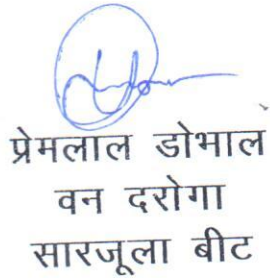 प्रेमलाल डोभाल
वन दरोगा
सारजूला बीट